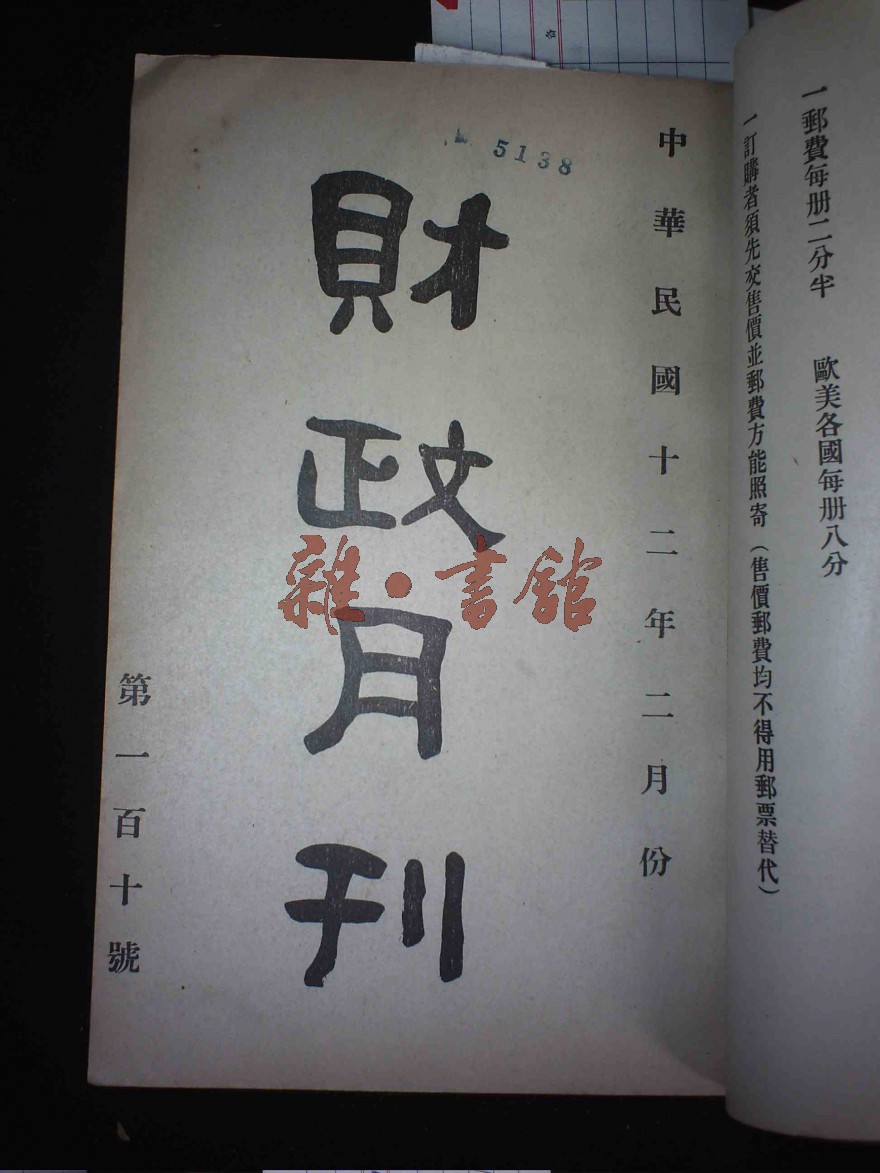 一郵費每册二分半　歐美各國每册八分
一訂購者須先交售價並郵費方能照寄（售價郵費均不得用郵票替代）
中華民國十二年二月份
5138
財政月刊
第一百十號
雜·書館